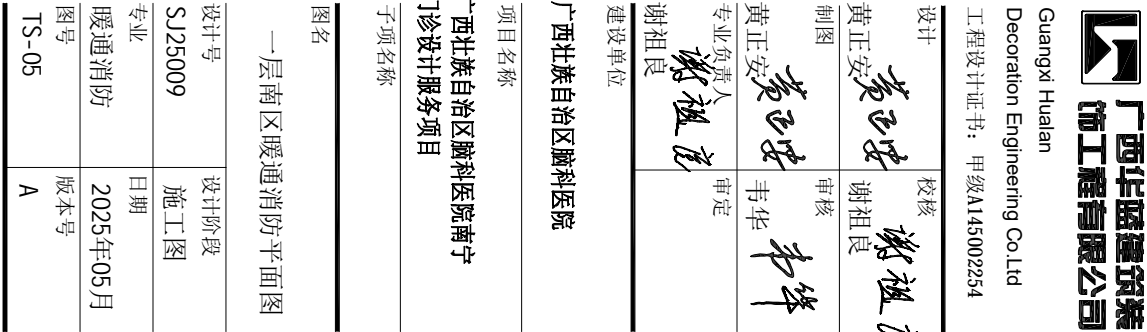 广西华蓝建筑装
饰工程有限公司
Guangxi Hualan
Decoration Engineering Co.Ltd
工程设计证书: 甲级A145002254
设计
黄正安 黄正安
校核
谢祖良 谢祖良
制图
黄正安 黄正安
审核
韦华 韦华
专业负责人
谢祖良 谢祖良
审定
建设单位
广西壮族自治区脑科医院
项目名称
广西壮族自治区脑科医院南宁
门诊设计服务项目
子项名称
图名
一层南区暖通消防平面图
设计号
SJ25009
设计阶段
施工图
专业
暖通消防
日期
2025年05月
图号
TS-05
版本号
A